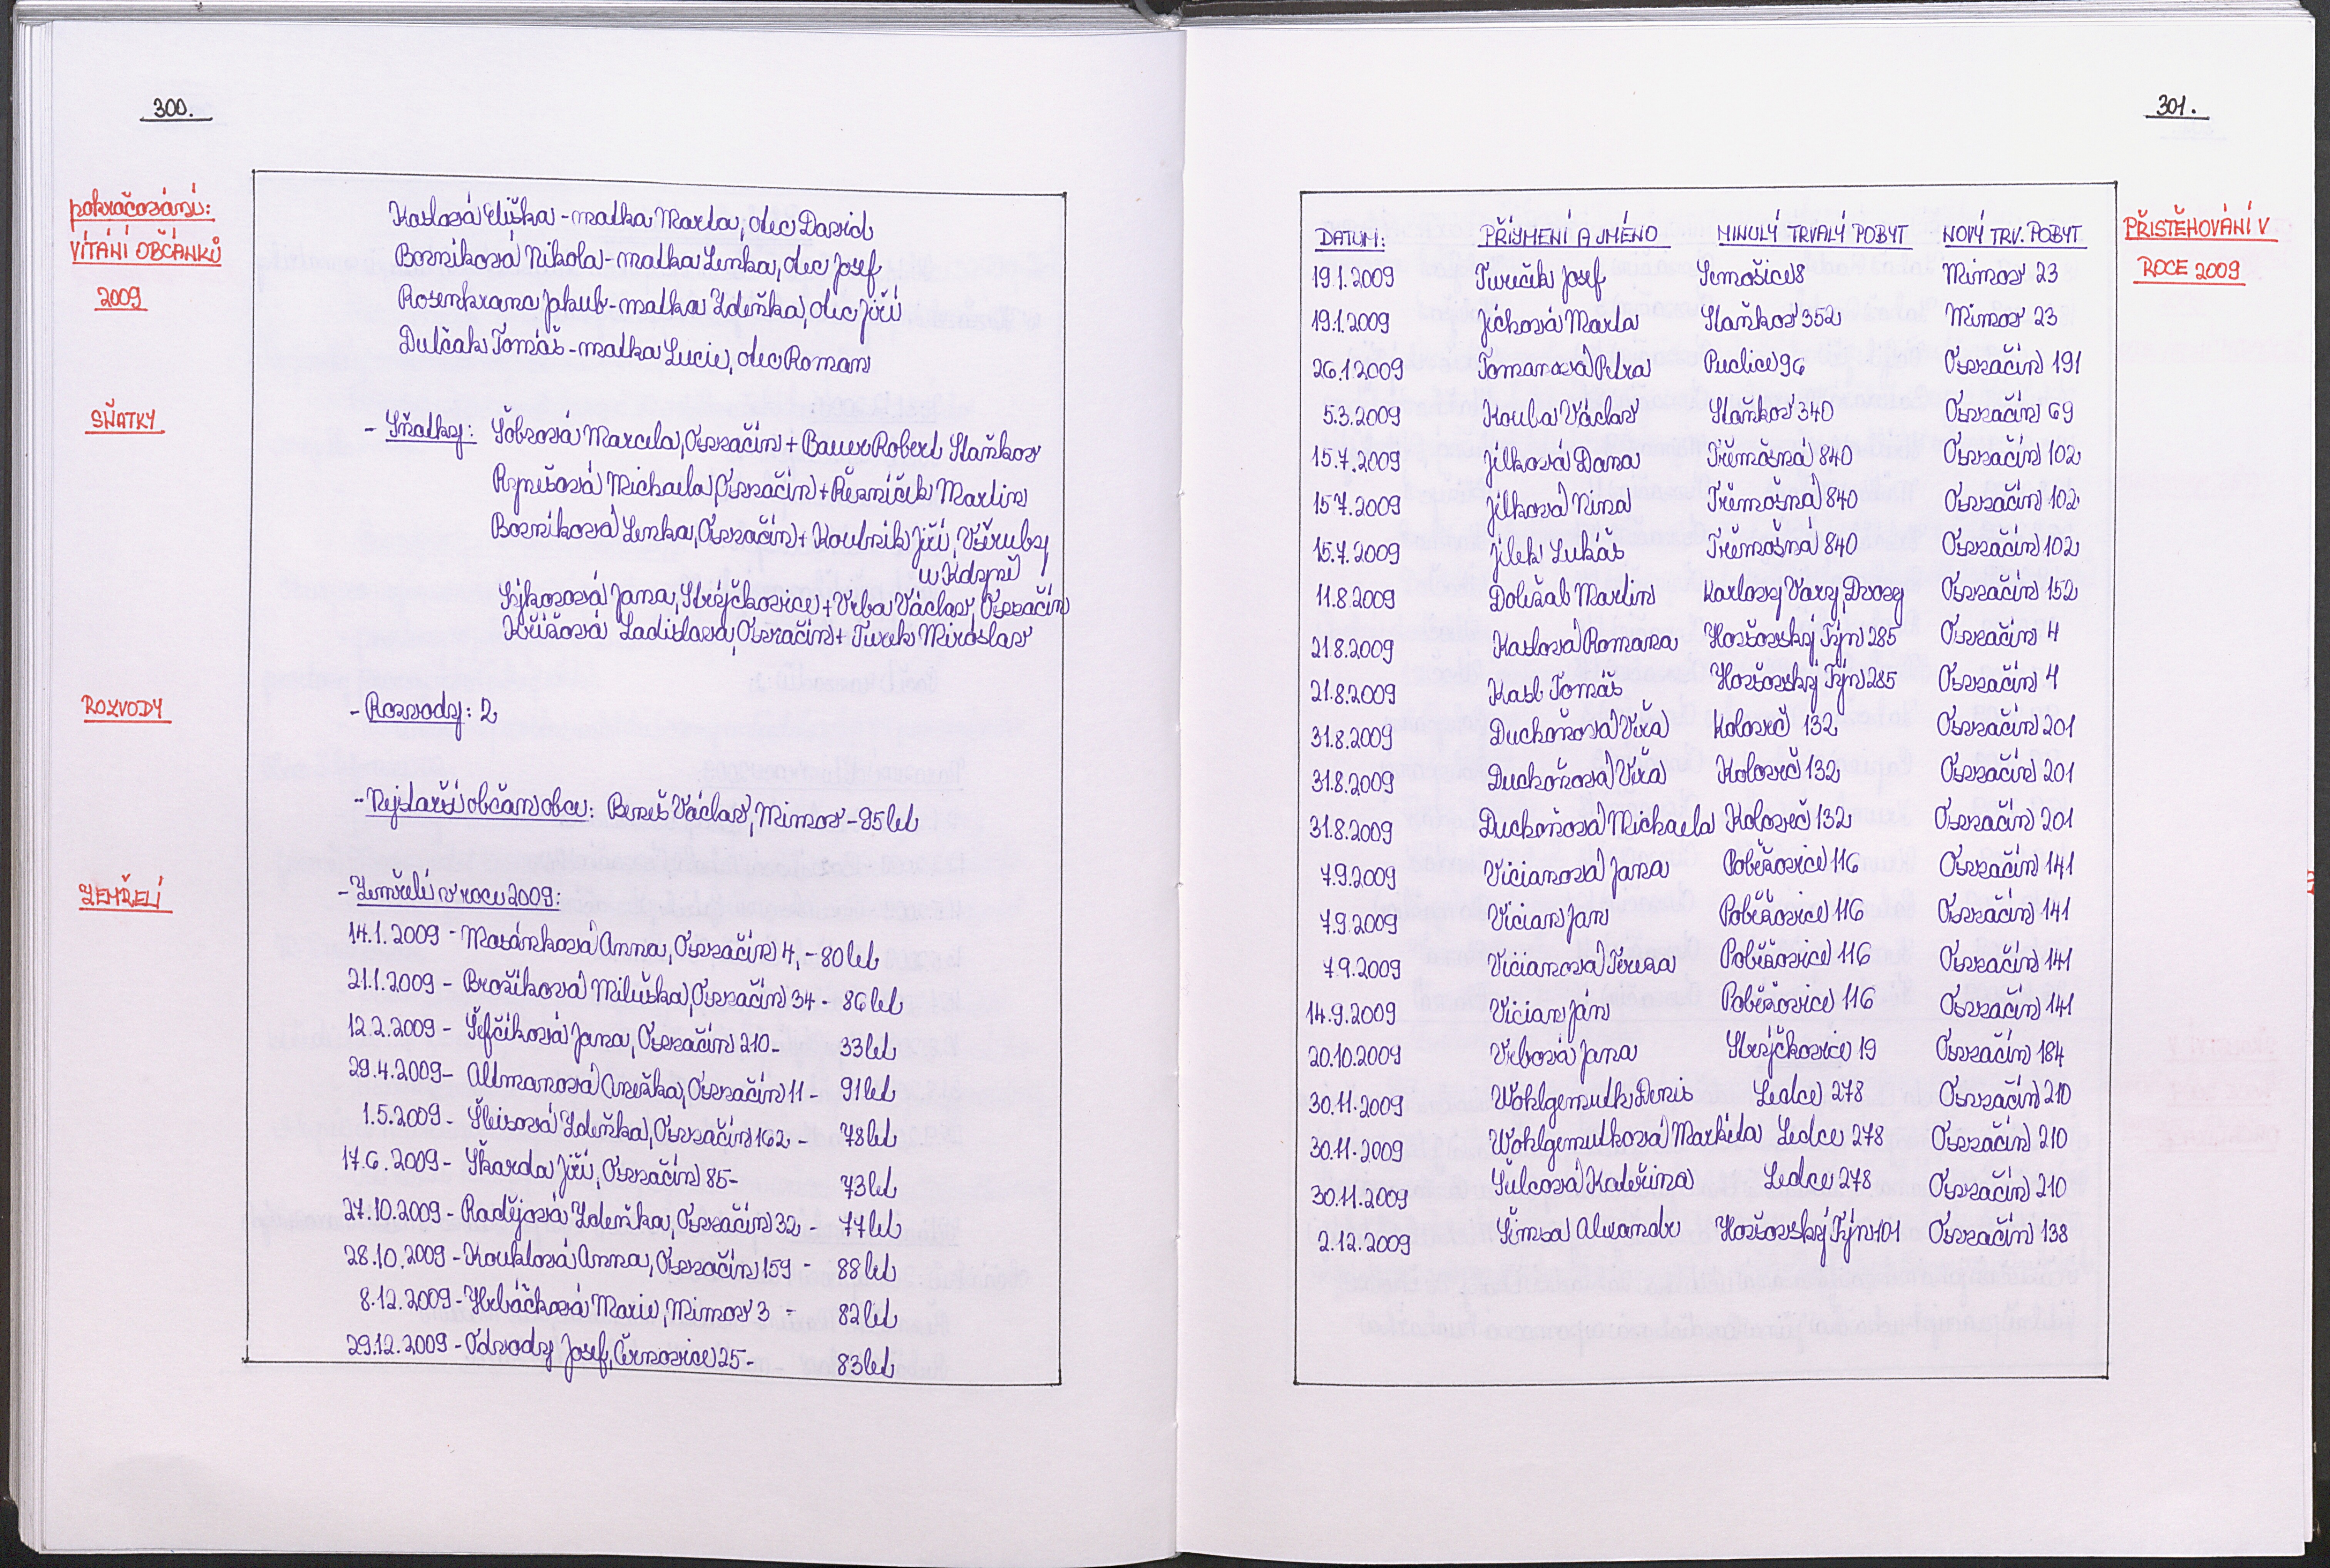 300.
pokračování:
VÍTÁNÍ OBČÁNKŮ
2009
Kaslová Eliška - matka Marta, otec David
Bozníková Nikola - matka Lenka, otec Josef
Rosenkranc Jakub - matka Zdeňka, otec Jiří
Dulčák Tomáš - matka Lucie, otec Roman
SŇATKY
- Sňatky: Šobrová Marcela, Osvračín + Bauer Robert Staňkov
Rynešová Michaela, Osvračín + Řezníček Martin
Bozníková Lenka, Osvračín + Koubník Jiří, Všeruby
u Kdyně
Sýkorová Jana, Strýčkovice + Vrba Václav, Osvračín
Křížová Ladislava, Osvračín + Turek Miroslav
ROZVODY
- Rozvody: 2
- Nejstarší občan obce: Beneš Václav, Mimov - 95 let
ZEMŘELÍ
- Zemřelí v roce 2009:
14.1.2009 - Masánková Anna, Osvračín 4, - 80 let
21.1.2009 - Brožíková Miluška, Osvračín 34 - 86 let
12.2.2009 - Šefčíková Jana, Osvračín 210 - 33 let
29.4.2009 - Altmanová Anežka, Osvračín 11 - 91 let
1.5.2009 - Šleisová Zdeňka, Osvračín 162 - 78 let
17.6.2009 - Škarda Jiří, Osvračín 85 - 73 let
27.10.2009 - Radějová Zdeňka, Osvračín 32 - 77 let
28.10.2009 - Kouklová Anna, Osvračín 159 - 88 let
8.12.2009 - Hrbáčková Marie, Mimov 3 - 82 let
29.12.2009 - Odvody Josef, Černovice 25 - 83 let
301.
PŘISTĚHOVÁNÍ V
ROCE 2009
DATUM: PŘÍJMENÍ A JMÉNO MINULÝ TRVALÝ POBYT NOVÝ TRV. POBYT
19.1.2009 Tureček Josef Semošice 8 Mimov 23
19.1.2009 Jíchová Marta Staňkov 352 Mimov 23
26.1.2009 Tomanová Petra Puclice 96 Osvračín 191
5.3.2009 Kouba Václav Staňkov 340 Osvračín 69
15.7.2009 Jílková Dana Třemošná 840 Osvračín 102
15.7.2009 Jílková Nina Třemošná 840 Osvračín 102
15.7.2009 Jílek Lukáš Třemošná 840 Osvračín 102
11.8.2009 Doležal Martin Karlovy Vary, Dvory Osvračín 152
21.8.2009 Kaslová Romana Horšovský Týn 285 Osvračín 4
21.8.2009 Kasl Tomáš Horšovský Týn 285 Osvračín 4
31.8.2009 Duchoňová Věra Koloveč 132 Osvračín 201
31.8.2009 Duchoňová Věra Koloveč 132 Osvračín 201
31.8.2009 Duchoňová Michaela Koloveč 132 Osvračín 201
7.9.2009 Vicianová Jana Poběžovice 116 Osvračín 141
7.9.2009 Vician Jan Poběžovice 116 Osvračín 141
7.9.2009 Vicianová Tereza Poběžovice 116 Osvračín 141
14.9.2009 Vician Ján Poběžovice 116 Osvračín 141
20.10.2009 Vrbová Jana Strýčkovice 19 Osvračín 184
30.11.2009 Wohlgemuth Denis Ledce 278 Osvračín 210
30.11.2009 Wohlgemuthová Markéta Ledce 278 Osvračín 210
30.11.2009 Šulcová Kateřina Ledce 278 Osvračín 210
2.12.2009 Šimsa Alexandr Horšovský Týn 101 Osvračín 138